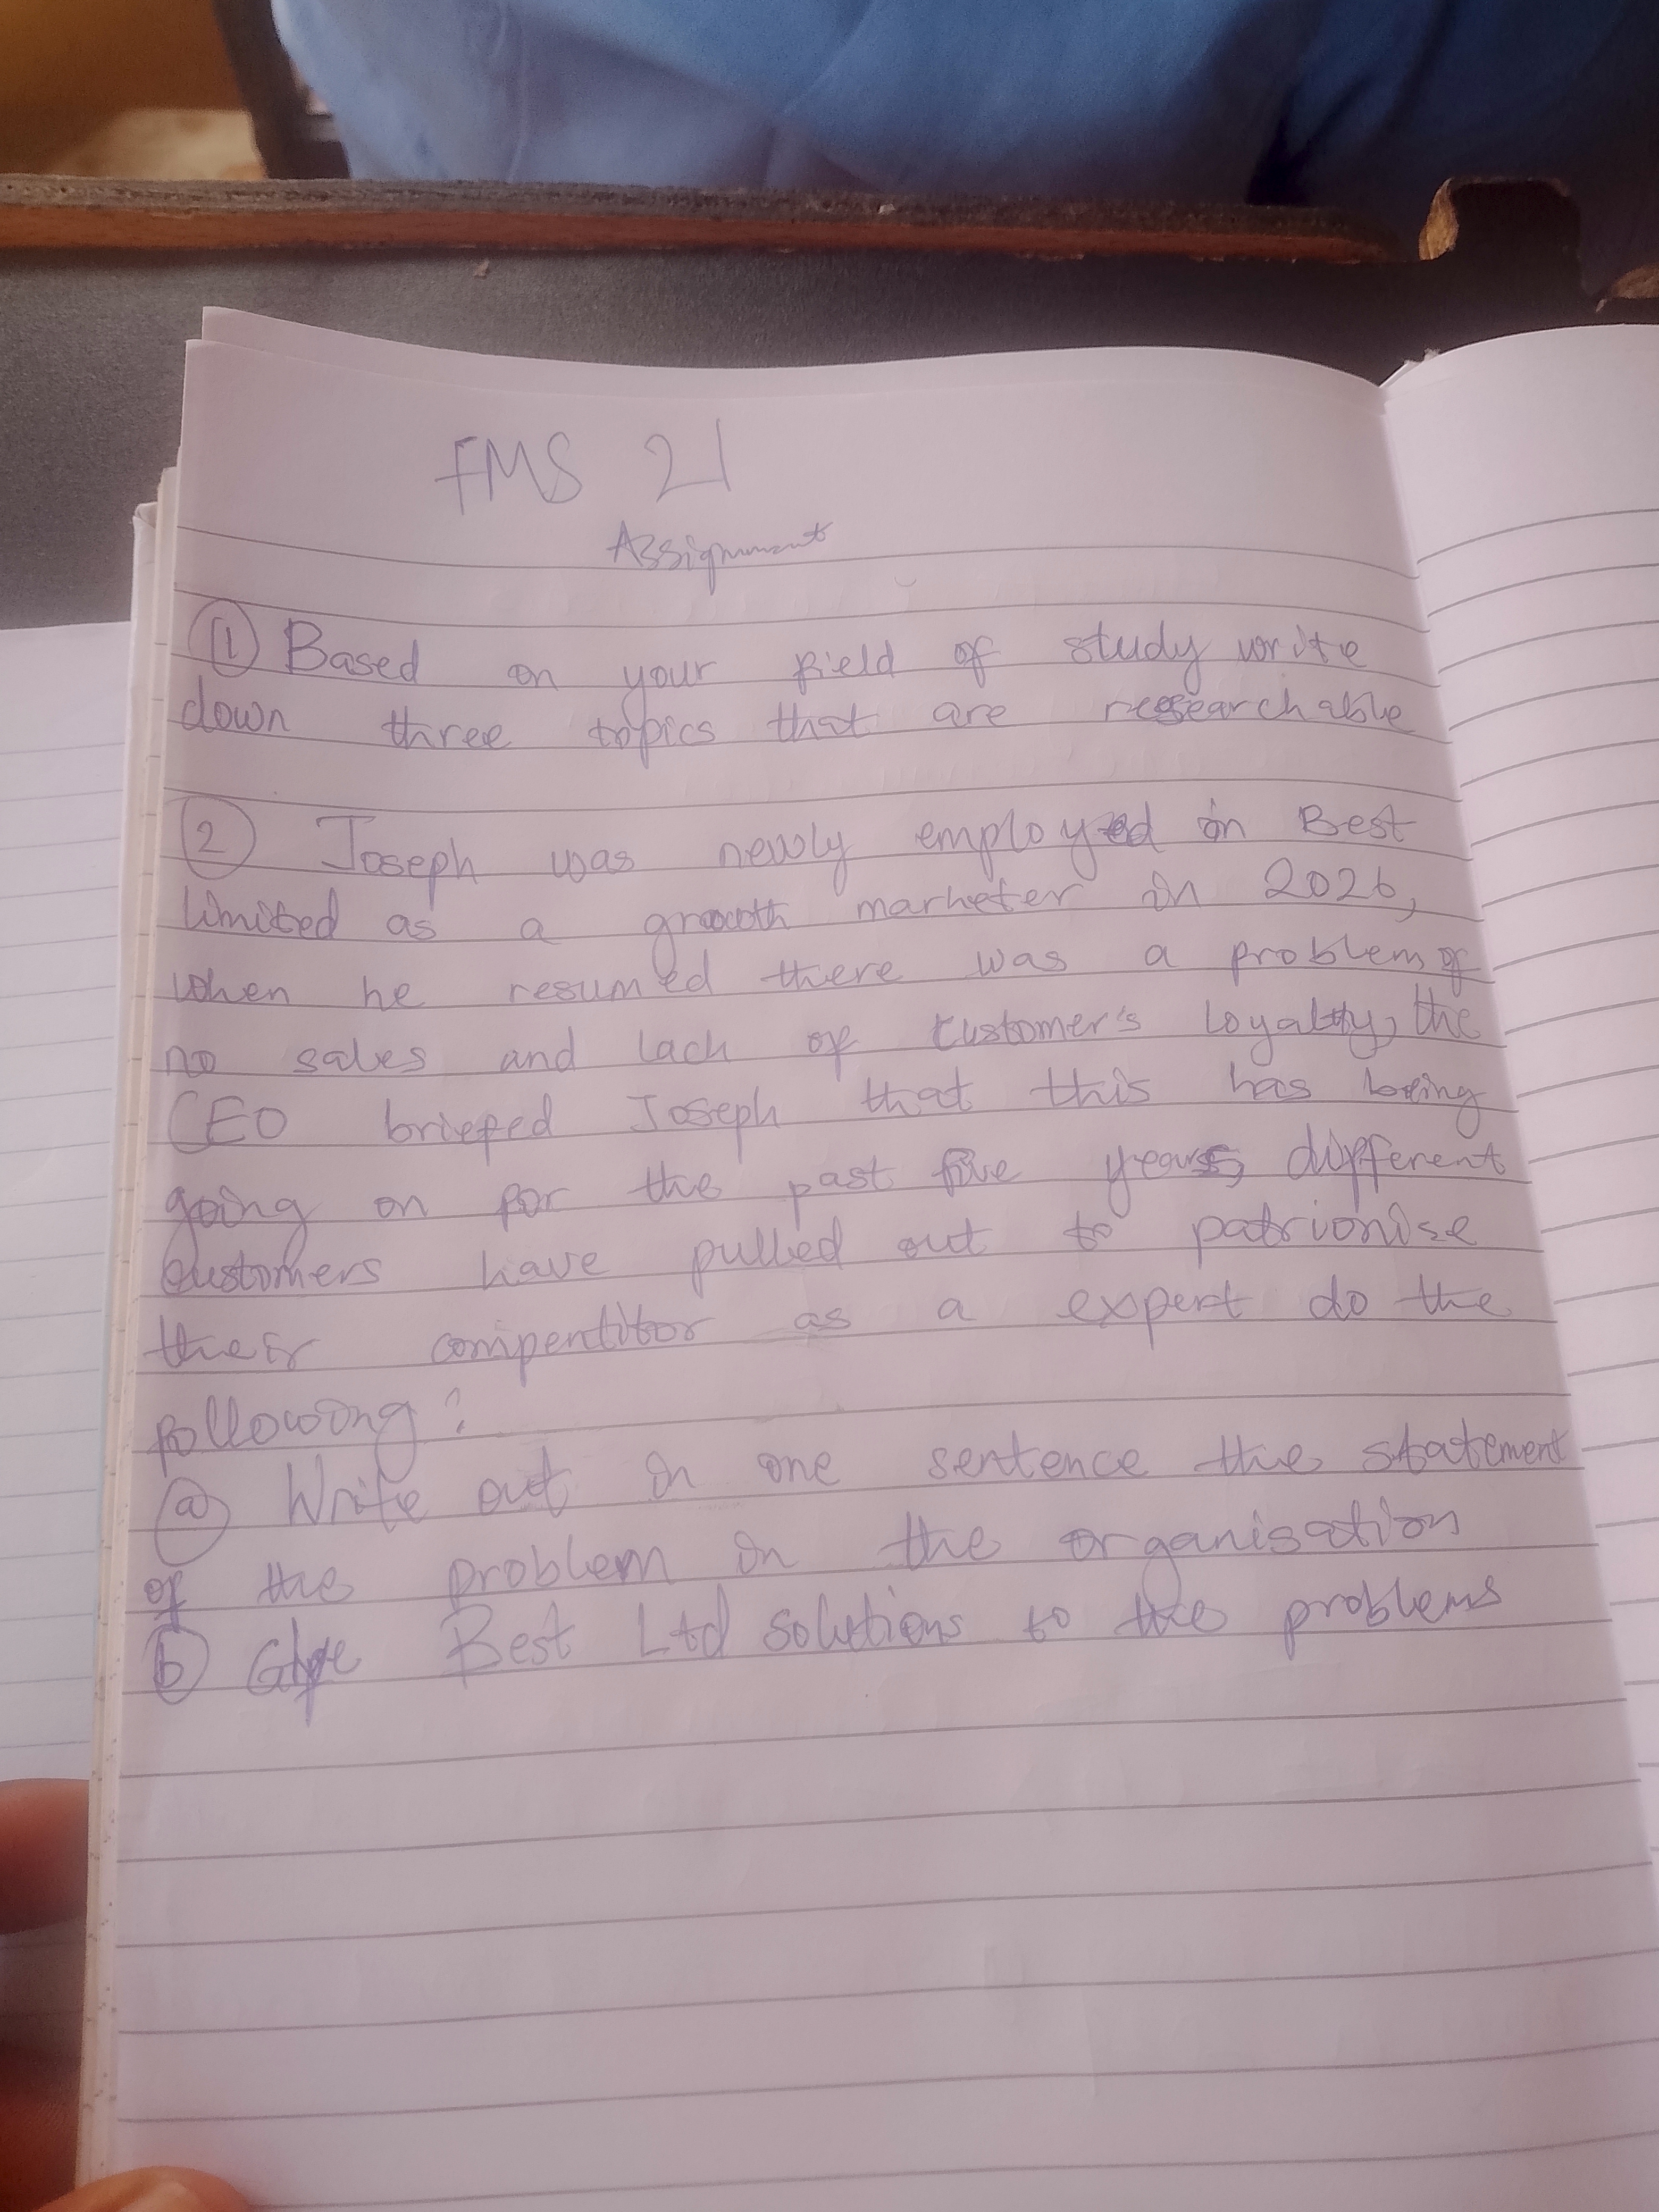 FMS 21
Assignment
① Based on your field of study write
down three topics that are researchable
② Joseph was newly employed in Best
limited as a growth marketer in 2026,
when he resumed there was a problem of
no sales and lack of customer's loyalty, the
CEO briefed Joseph that this has being
going on for the past five years, different
customers have pulled out to patrionise
their compentitor as a expert do the
following?
ⓐ Write out in one sentence the statement
of the problem in the organisation
ⓑ Give Best Ltd solutions to the problems